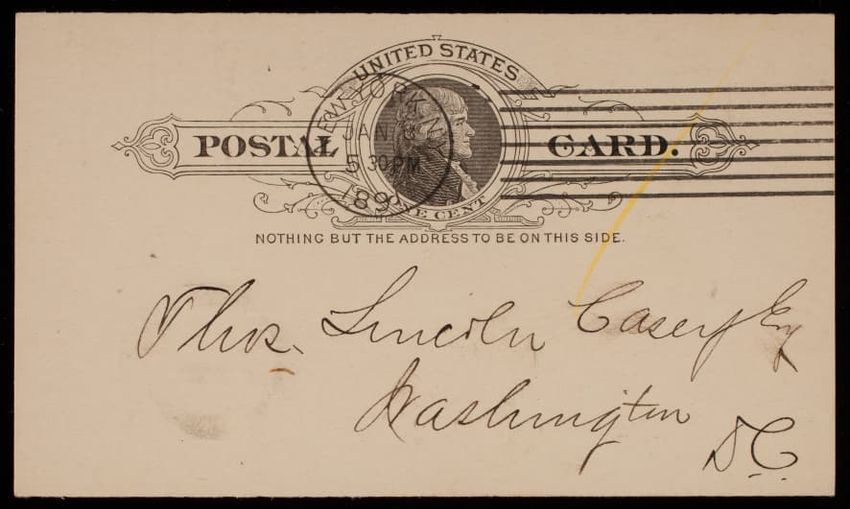 UNITED STATES
POSTAL CARD.
NEW YORK N.Y.
JAN
5 30 PM
189
ONE CENT
NOTHING BUT THE ADDRESS TO BE ON THIS SIDE.
Thos. Lincoln Casey Esq
Washington
D.C.